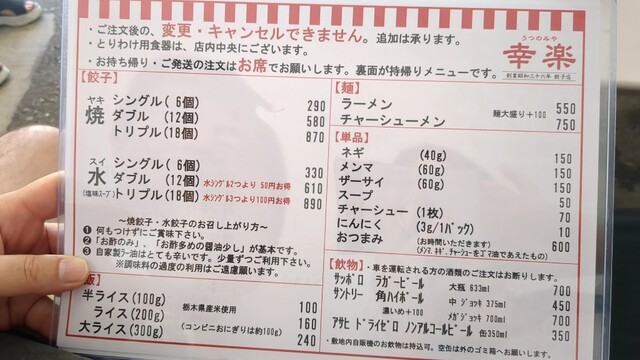 ・ご注文後の、変更・キャンセルできません。追加は承ります。
・とりわけ用食器は、店内中央にございます。
・お持ち帰り・ご発送の注文はお席でお願いします。裏面が持帰りメニューです。
うつのみや
幸楽
創業昭和三十六年 餃子店
【餃子】
ヤキ
焼
シングル( 6個) 290
ダブル (12個) 580
トリプル(18個) 870
スイ
水
(塩味スープ)
シングル( 6個) 330
ダブル (12個) 水シングル2つより 50円お得 610
トリプル(18個) 水シングル3つより100円お得 890
～焼餃子・水餃子のお召し上がり方～
❶ 何もつけずにご賞味下さい。
❷ 「お酢のみ」、「お酢多めの醤油少し」が基本です。
❸ 自家製ラー油はとても辛いです。少量ずつご利用下さい。
※調味料の過度の利用はご遠慮願います。
飯】
半ライス(100g) 栃木県産米使用 100
ライス(200g) 160
大ライス(300g) (コンビニおにぎりは約100g) 240
【麺】
ラーメン 550
チャーシューメン 麺大盛り+100 750
【単品】
ネギ (40g) 150
メンマ (60g) 150
ザーサイ (60g) 150
スープ 50
チャーシュー (1枚) 70
にんにく (3g/1パック) 10
おつまみ (お時間いただきます) 600
(メンマ、ネギ、チャーシューをゴマ油であえたもの)
【飲物】・車を運転される方の酒類のご注文はお断りします。
サッポロ ラガービール 大瓶 633ml 700
サントリー 角ハイボール 中 ジョッキ 375ml 450
濃いめ +100 メガジョッキ 700ml 700
アサヒ ドライゼロ ノンアルコールビール 缶350ml 350
・敷地内自販機のお飲物は持込可。空缶は外のゴミ箱へお願いします。